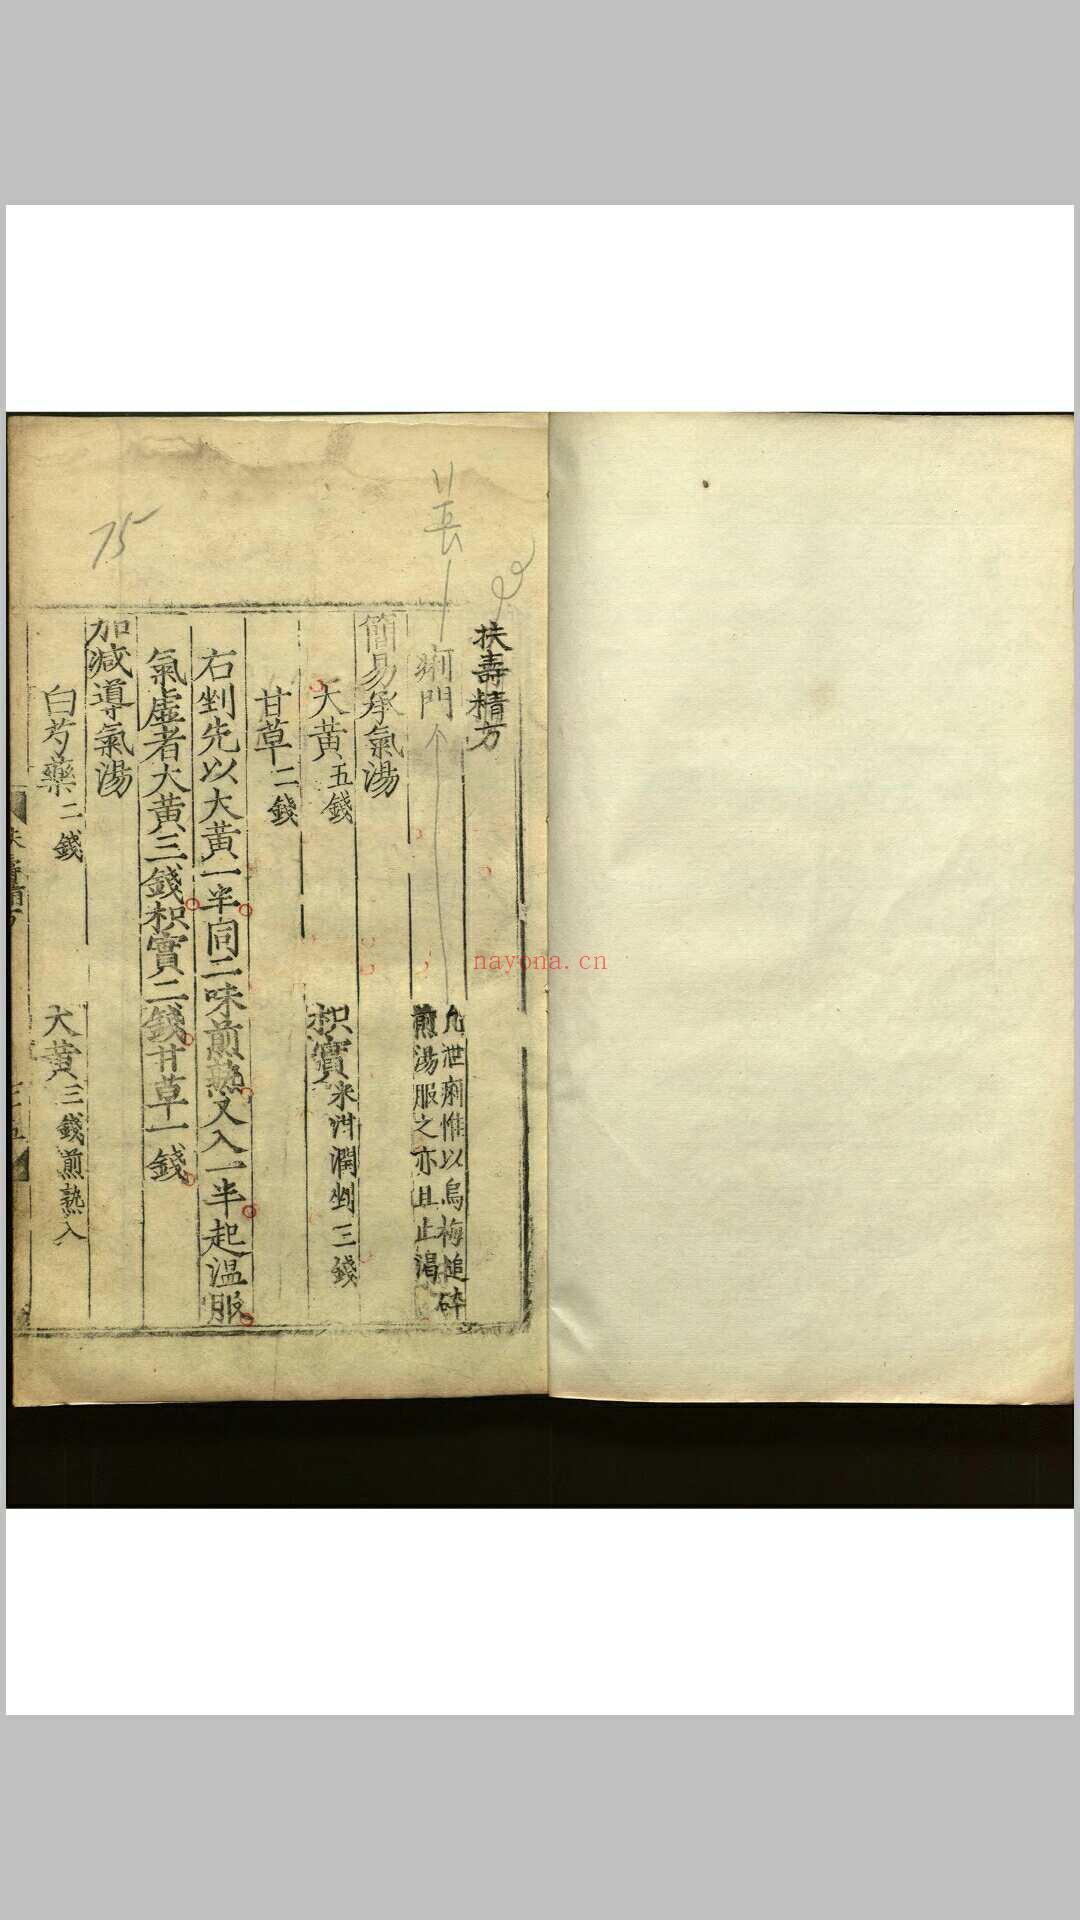 扶壽精方
痢門
凢泄痢惟以烏梅搥碎
煎湯服之亦且止渴
簡易承氣湯
大黃五錢 枳實米泔潤剉三錢
甘草二錢
右剉先以大黃一半同二味煎熟又入一半起溫服
氣虛者大黃三錢枳實二錢甘草一錢
加减導氣湯
白芍藥二錢 大黃三錢煎熟入
75
nayona.cn